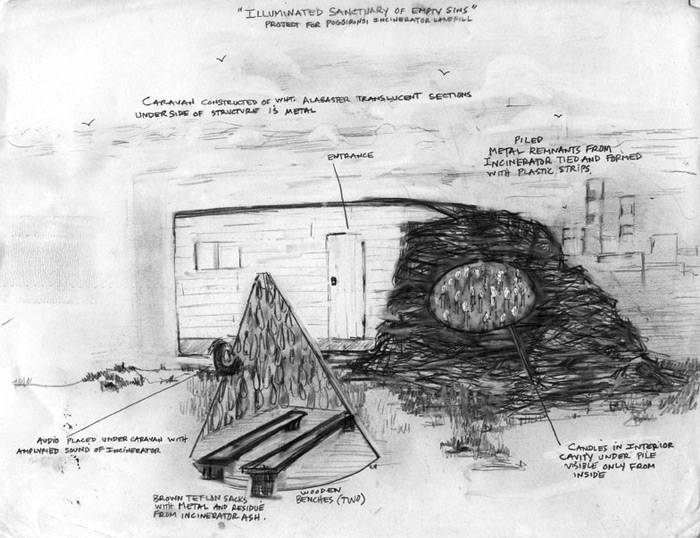 "ILLUMINATED SANCTUARY OF EMPTY SINS"
PROJECT FOR POGGIBONSI INCINERATOR LANDFILL
CARAVAN CONSTRUCTED OF WHT. ALABASTER TRANSLUCENT SECTIONS
UNDERSIDE OF STRUCTURE IS METAL
ENTRANCE
PILED
METAL REMNANTS FROM
INCINERATOR TIED AND FORMED
WITH PLASTIC STRIPS.
AUDIO PLACED UNDER CARAVAN WITH
AMPLIFIED SOUND OF INCINERATOR
BROWN TEFLON SACKS
WITH METAL AND RESIDUE
FROM INCINERATOR ASH.
WOODEN
BENCHES (TWO)
CANDLES IN INTERIOR
CAVITY UNDER PILE
VISIBLE ONLY FROM
INSIDE